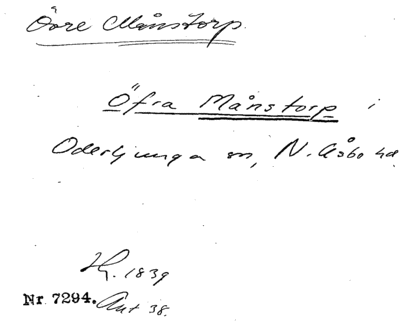 Övre Månstorp.
Öfra Månstorp i
Oderljunga sn, N. Åsbo hd
Hf. 1839
Nr 7294. Ant 38.